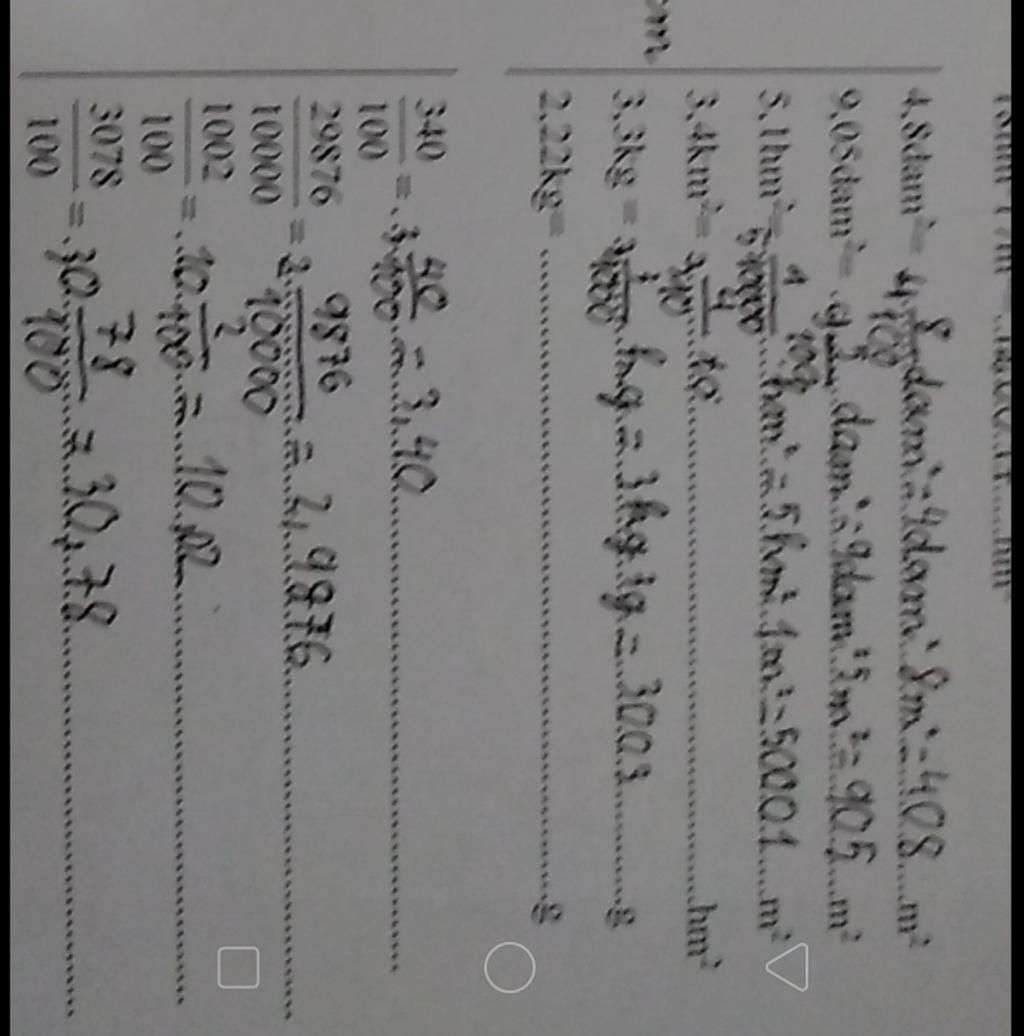 4.8dam²= 4 8/100 dam²=4dam² 8m²=408 m²
9.05dam²= 9 5/100 dam²=9dam² 5m²=905 m²
5.1hm²= 5 1/10000 hm²=5hm² 1m²=50001 m²
3.4km²= 3 4/10 hm²
3.3kg = 3 3/1000 kg=3kg 3g=3003 g
2.22kg= g
340/100 = 3 40/100 = 3,40
29876/10000 = 2 9876/10000 = 2,9876
1002/100 = 10 2/100 = 10,02
3078/100 = 30 78/100 = 30,78